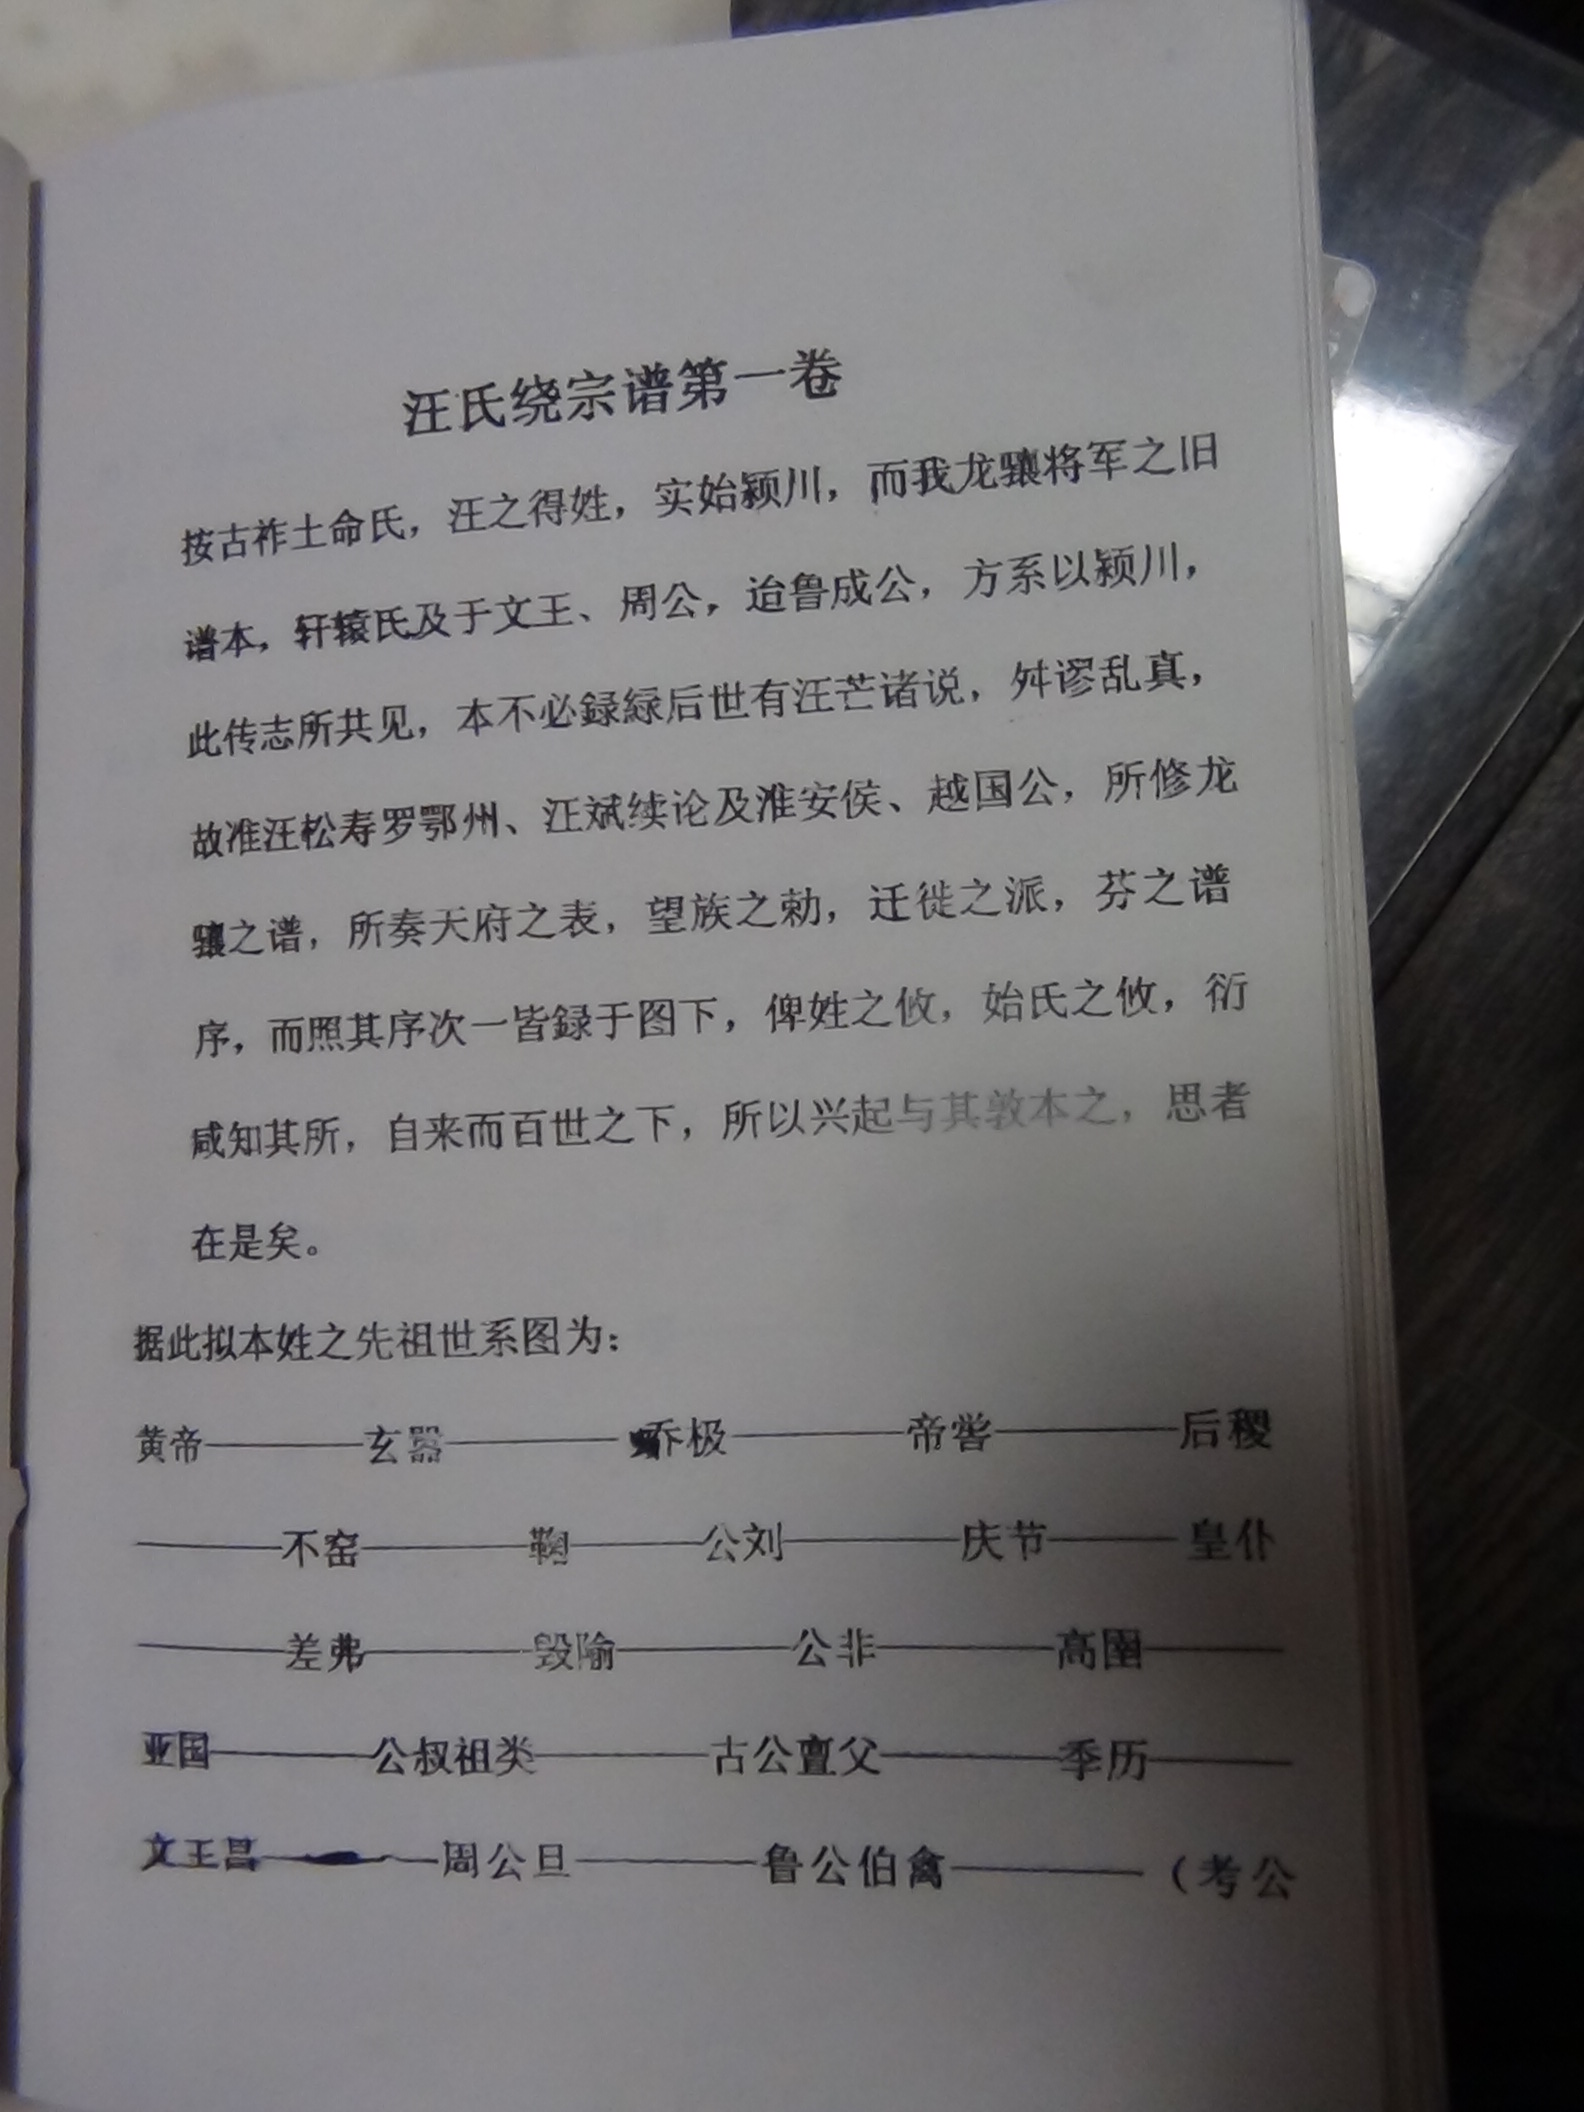 汪氏绕宗谱第一卷
按古祚土命氏，汪之得姓，实始颍川，而我龙骧将军之旧
谱本，轩辕氏及于文王、周公，迨鲁成公，方系以颍川，
此传志所共见，本不必録緑后世有汪芒诸说，舛谬乱真，
故准汪松寿罗鄂州、汪斌续论及淮安侯、越国公，所修龙
骧之谱，所奏天府之表，望族之勅，迁徙之派，芬之谱
序，而照其序次一皆録于图下，俾姓之攸，始氏之攸，衍
咸知其所，自来而百世之下，所以兴起与其敦本之，思者
在是矣。
据此拟本姓之先祖世系图为：
黄帝——玄嚣——乔极——帝喾——后稷
——不窋——鞠——公刘——庆节——皇仆
——差弗——毁隃——公非——高圉——
亚国——公叔祖类——古公亶父——季历——
文王昌——周公旦——鲁公伯禽——（考公